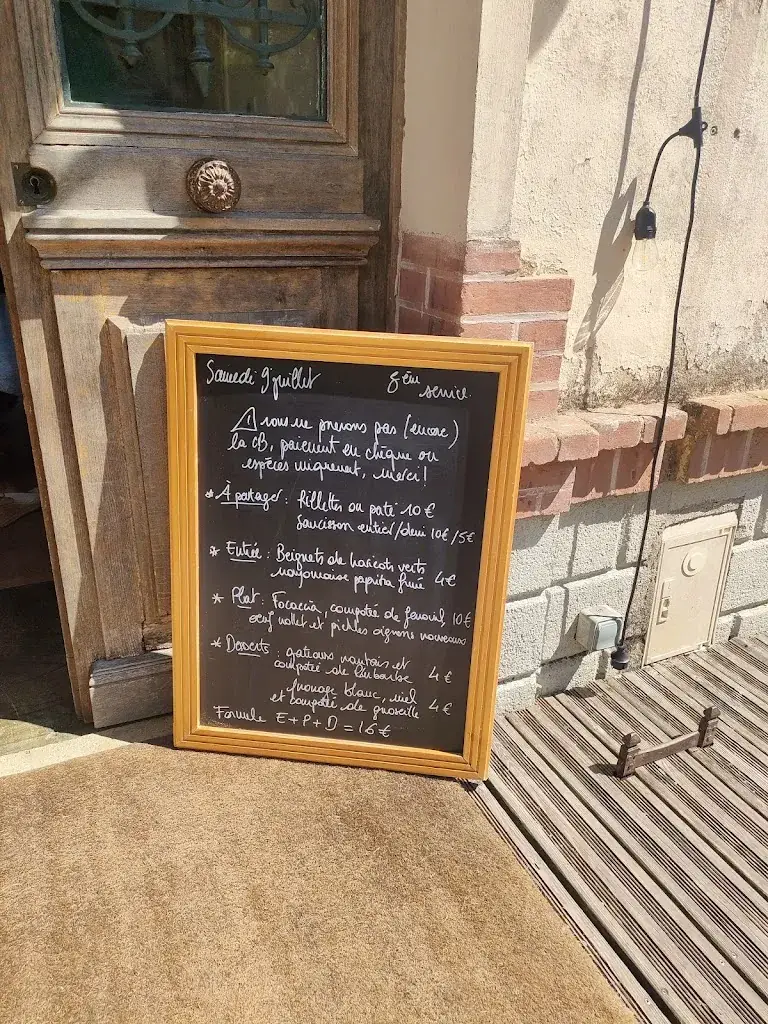 Samedi 9 juillet 8ème service.
⚠ nous ne prenons pas (encore)
la CB, paiement en chèque ou
espèces uniquement, merci!
* À partager : Rillettes ou paté 10 €
Saucisson entier/demi 10€/5€
* Entrée : Beignets de haricots verts
mayonnaise paprika fumé 4€
* Plat : Focaccia, compotée de fenouil, 10€
oeuf mollet et pickles oignons nouveaux
* Desserts : gateaux nantais et
compotée de rhubarbe 4€
fromage blanc, miel
et compotée de groseille 4€
Formule E+P+D = 16€